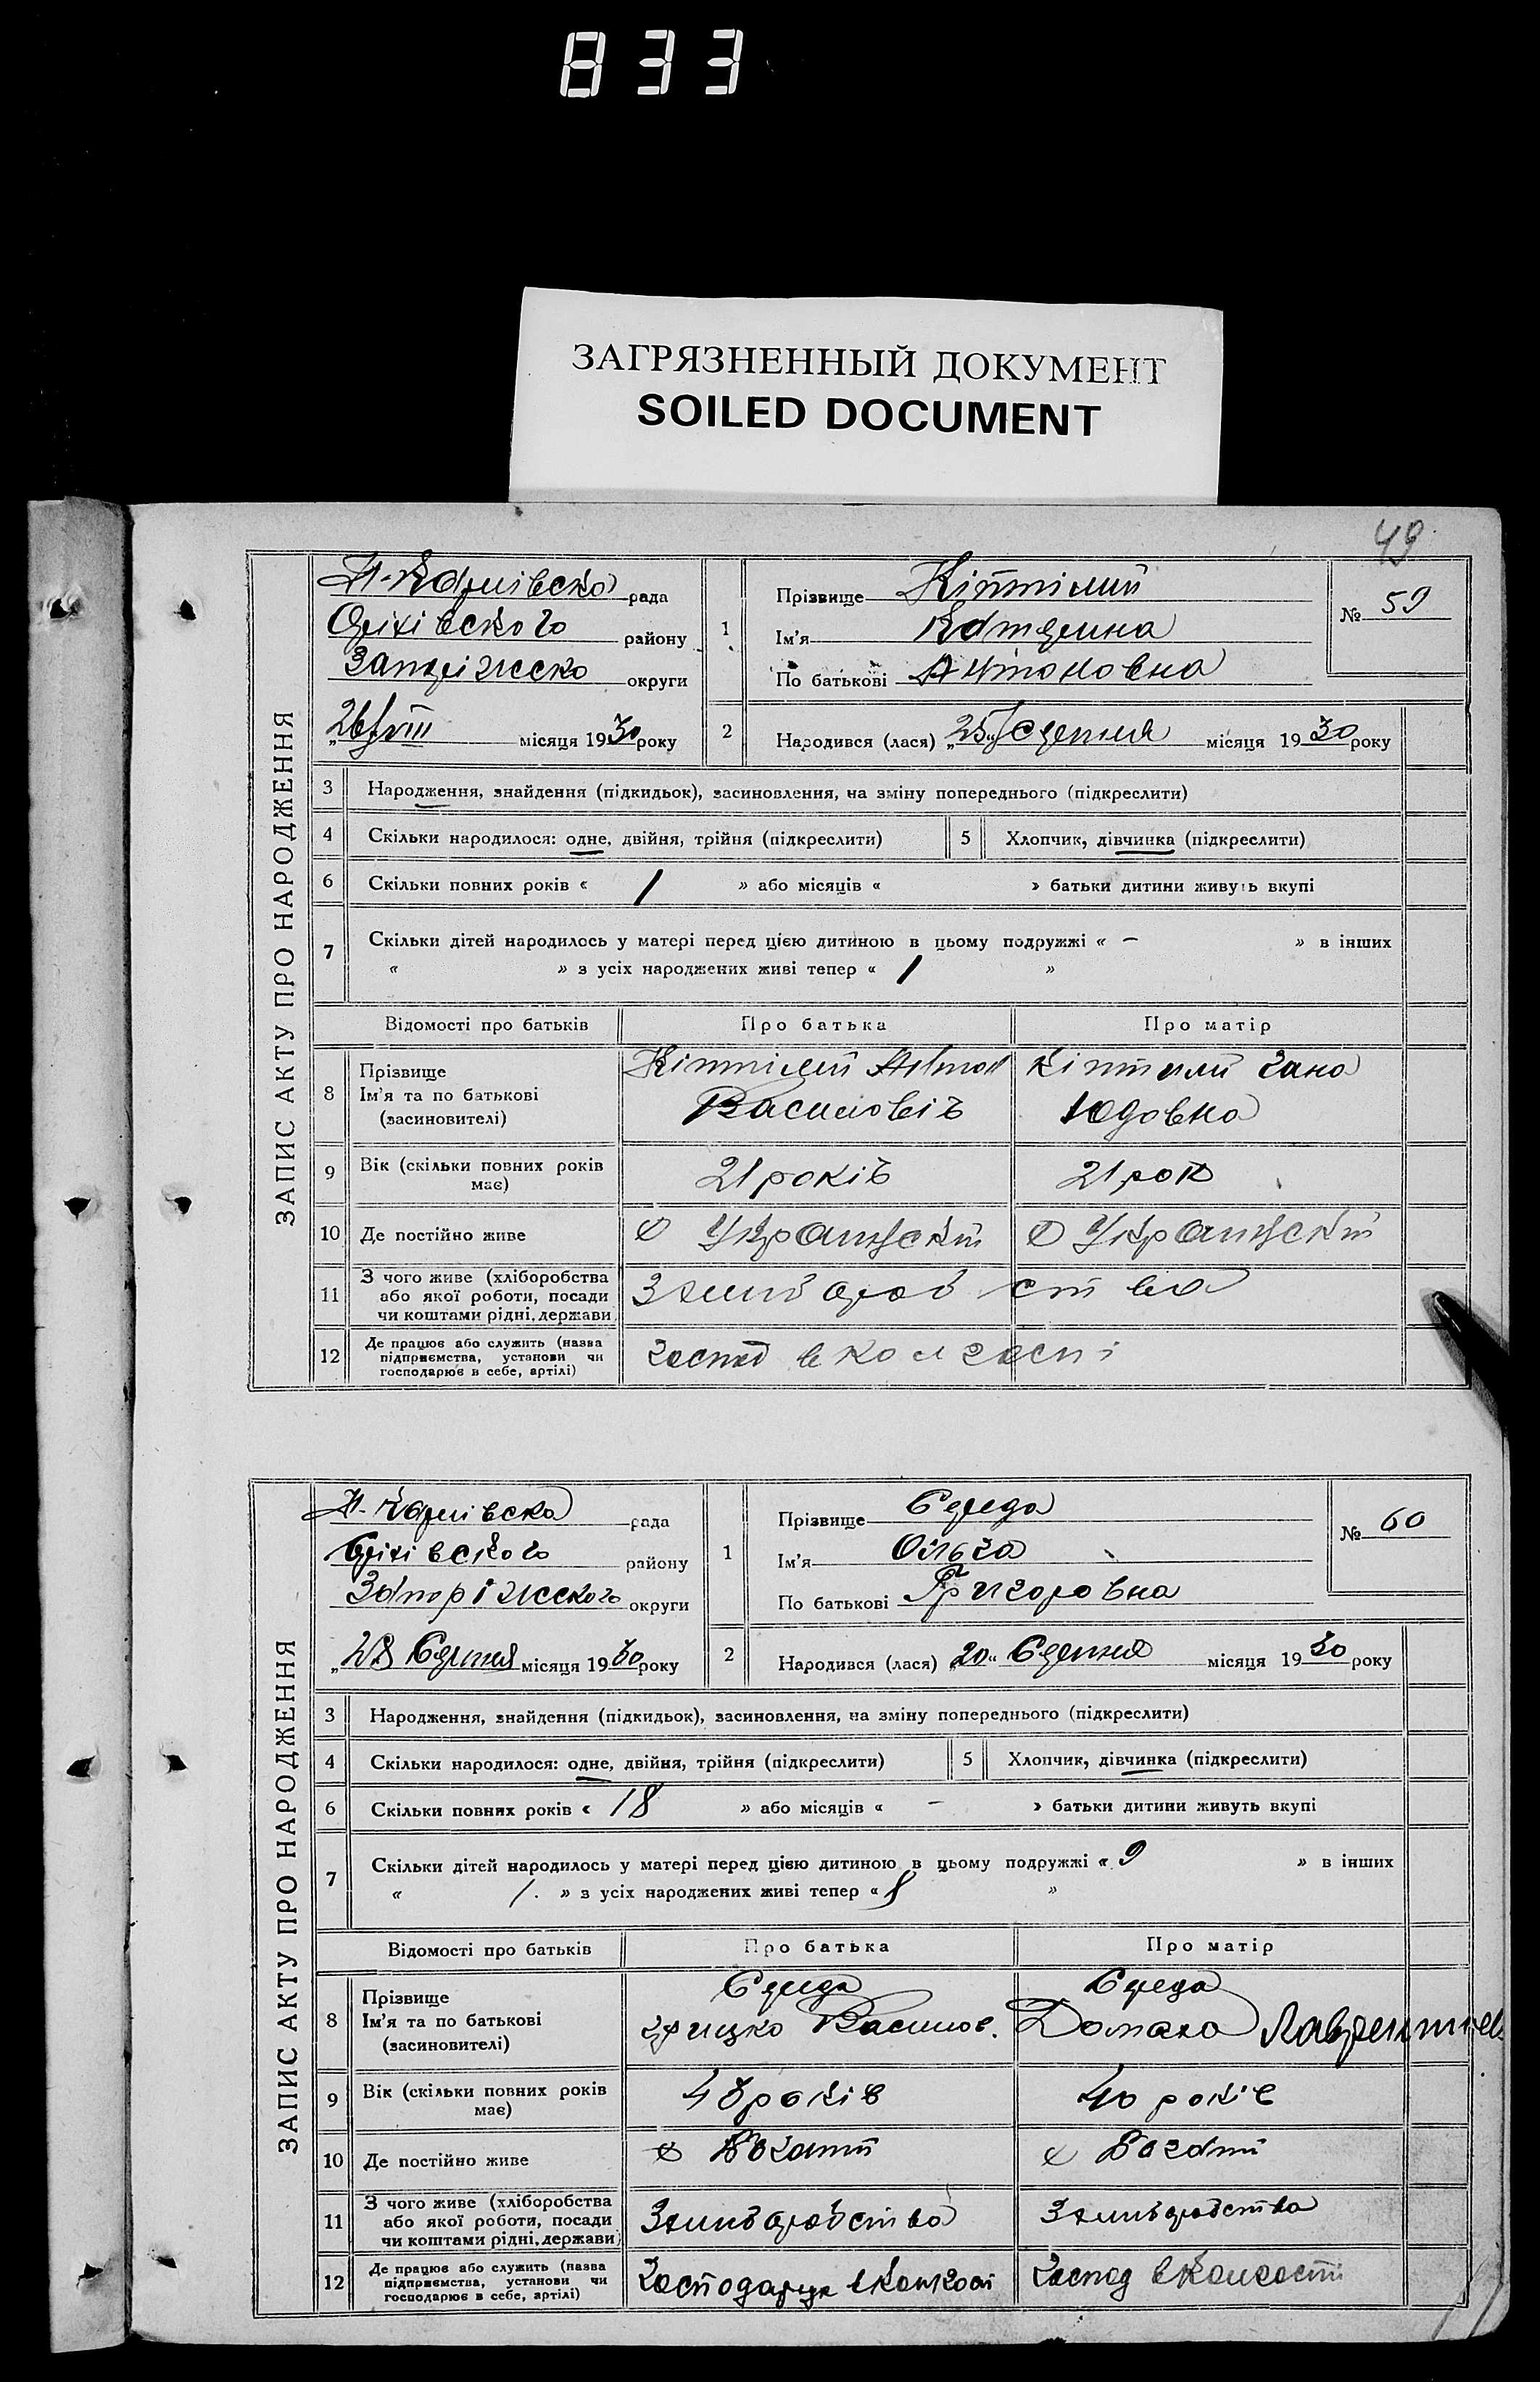 833
ЗАГРЯЗНЕННЫЙ ДОКУМЕНТ
SOILED DOCUMENT
49
ЗАПИС АКТУ ПРО НАРОДЖЕННЯ
Н-Карлівська рада
Оріхівського району
округи
26/VIII місяця 1930 року
1
Прізвище
Ім'я Катерина
По батькові Антоновна
№ 59
2 Народився (лася) „25" серпня місяця 1930 року
3 Народження, знайдення (підкидьок), засиновлення, на зміну попереднього (підкреслити)
4 Скільки народилося: одне, двійня, трійня (підкреслити) 5 Хлопчик, дівчинка (підкреслити)
6 Скільки повних років « 1 » або місяців « » батьки дитини живуть вкупі
7 Скільки дітей народилось у матері перед цією дитиною в цьому подружжі « — » в інших
« » з усіх народжених живі тепер « 1 »
Відомості про батьків Про батька Про матір
8 Прізвище
Ім'я та по батькові
(засиновителі)
Антон
Василовів
Юдовна
9 Вік (скільки повних років має) 21 років 21 рок
10 Де постійно живе
11 З чого живе (хліборобства або якої роботи, посади чи коштами рідні, держави
12 Де працює або служить (назва підприємства, установи чи господарює в себе, артілі) господ в колгоспі
ЗАПИС АКТУ ПРО НАРОДЖЕННЯ
Н-Карлівська рада
Оріхівського району
Запоріжського округи
„28 Серпня місяця 1930 року
1
Прізвище Середа
Ім'я Ольга
По батькові Григоровна
№ 60
2 Народився (лася) „20" Серпня місяця 1930 року
3 Народження, знайдення (підкидьок), засиновлення, на зміну попереднього (підкреслити)
4 Скільки народилося: одне, двійня, трійня (підкреслити) 5 Хлопчик, дівчинка (підкреслити)
6 Скільки повних років « 18 » або місяців « — » батьки дитини живуть вкупі
7 Скільки дітей народилось у матері перед цією дитиною в цьому подружжі « 9 » в інших
« 1. » з усіх народжених живі тепер « 8 »
Відомості про батьків Про батька Про матір
8 Прізвище
Ім'я та по батькові
(засиновителі)
Середа
Грицко Василов.
Середа
Домаха
9 Вік (скільки повних років має) 48 років 40 років
10 Де постійно живе
11 З чого живе (хліборобства або якої роботи, посади чи коштами рідні, держави)
12 Де працює або служить (назва підприємства, установи чи господарює в себе, артілі) господ в колгоспі